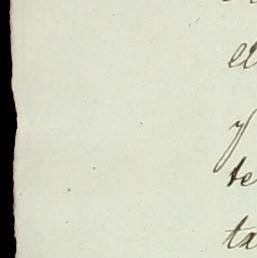 el
y
te
ta